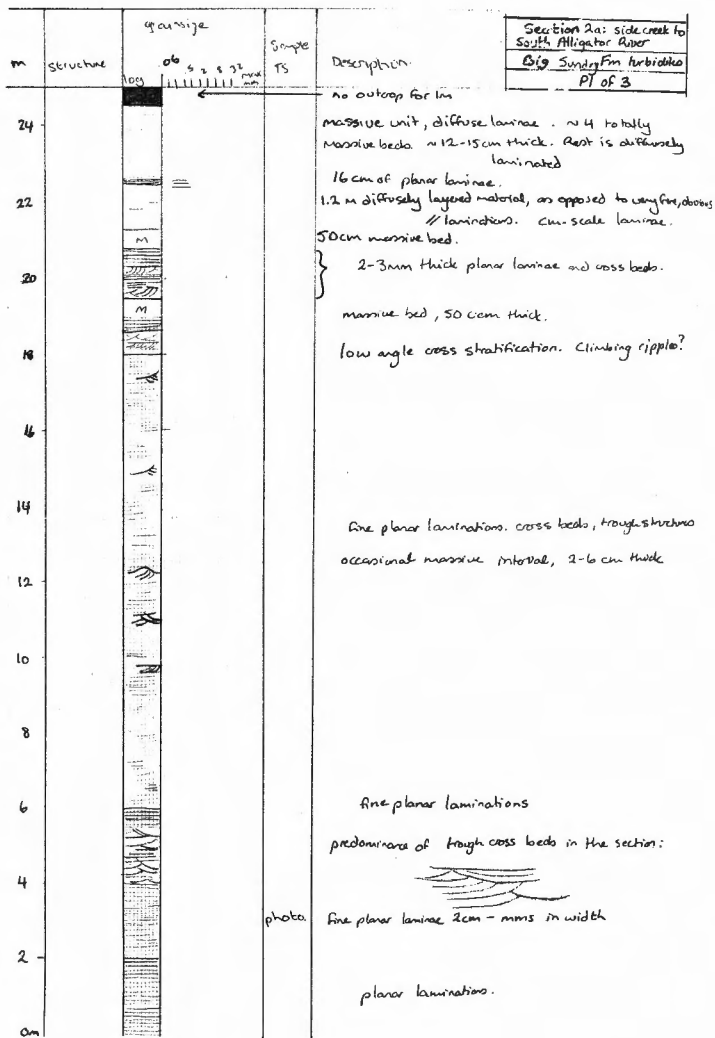 Section 2a: side creek to
South Alligator River
Big Sunday Fm turbidites
P1 of 3
grainsize
m
structure
log
.06 .5 2 8 32
mm
Sample
TS
Description.
no outcrop for 1m
24
massive unit, diffuse laminae. ~4 totally
massive beds. ~12-15cm thick. Rest is diffusely
laminated
16 cm of planar laminae.
22
1.2 m diffusely layered material, as opposed to very fine, obvious
// laminations. cm-scale laminae.
M
50cm massive bed.
2-3mm thick planar laminae and cross beds.
20
M
massive bed, 50 cm thick.
18
low angle cross stratification. Climbing ripples?
16
14
fine planar laminations. cross beds, trough structures
occasional massive interval, 2-6 cm thick
12
10
8
6
fine planar laminations
predominance of trough cross beds in the section:
4
photo.
fine planar laminae 2cm - mms in width
2
planar laminations.
0m